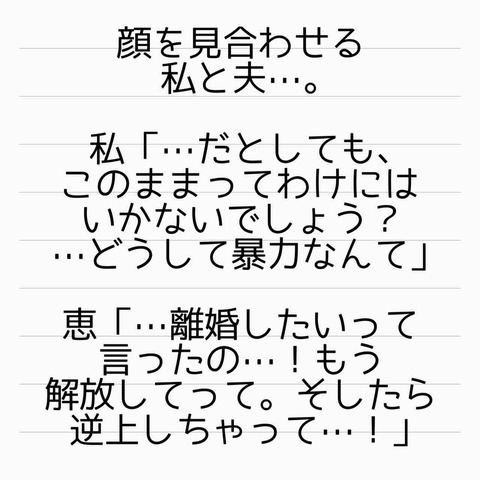 顔を見合わせる
私と夫…。
私「…だとしても、
このままってわけには
いかないでしょう？
…どうして暴力なんて」
恵「…離婚したいって
言ったの…！もう
解放してって。そしたら
逆上しちゃって…！」